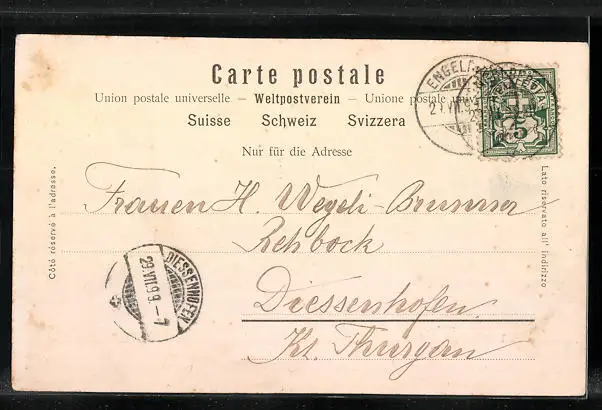 Carte postale
Union postale universelle – Weltpostverein – Unione postale
Suisse Schweiz Svizzera
Nur für die Adresse
HELVETIA
5
Côté réservé à l'adresse.
Lato riservato all' indirizzo
Frauen H. Wegeli-Brunner
Rehbock
Diessenhofen
Kt. Thurgau
DIESSENHOFEN
29.VII.99 – 7